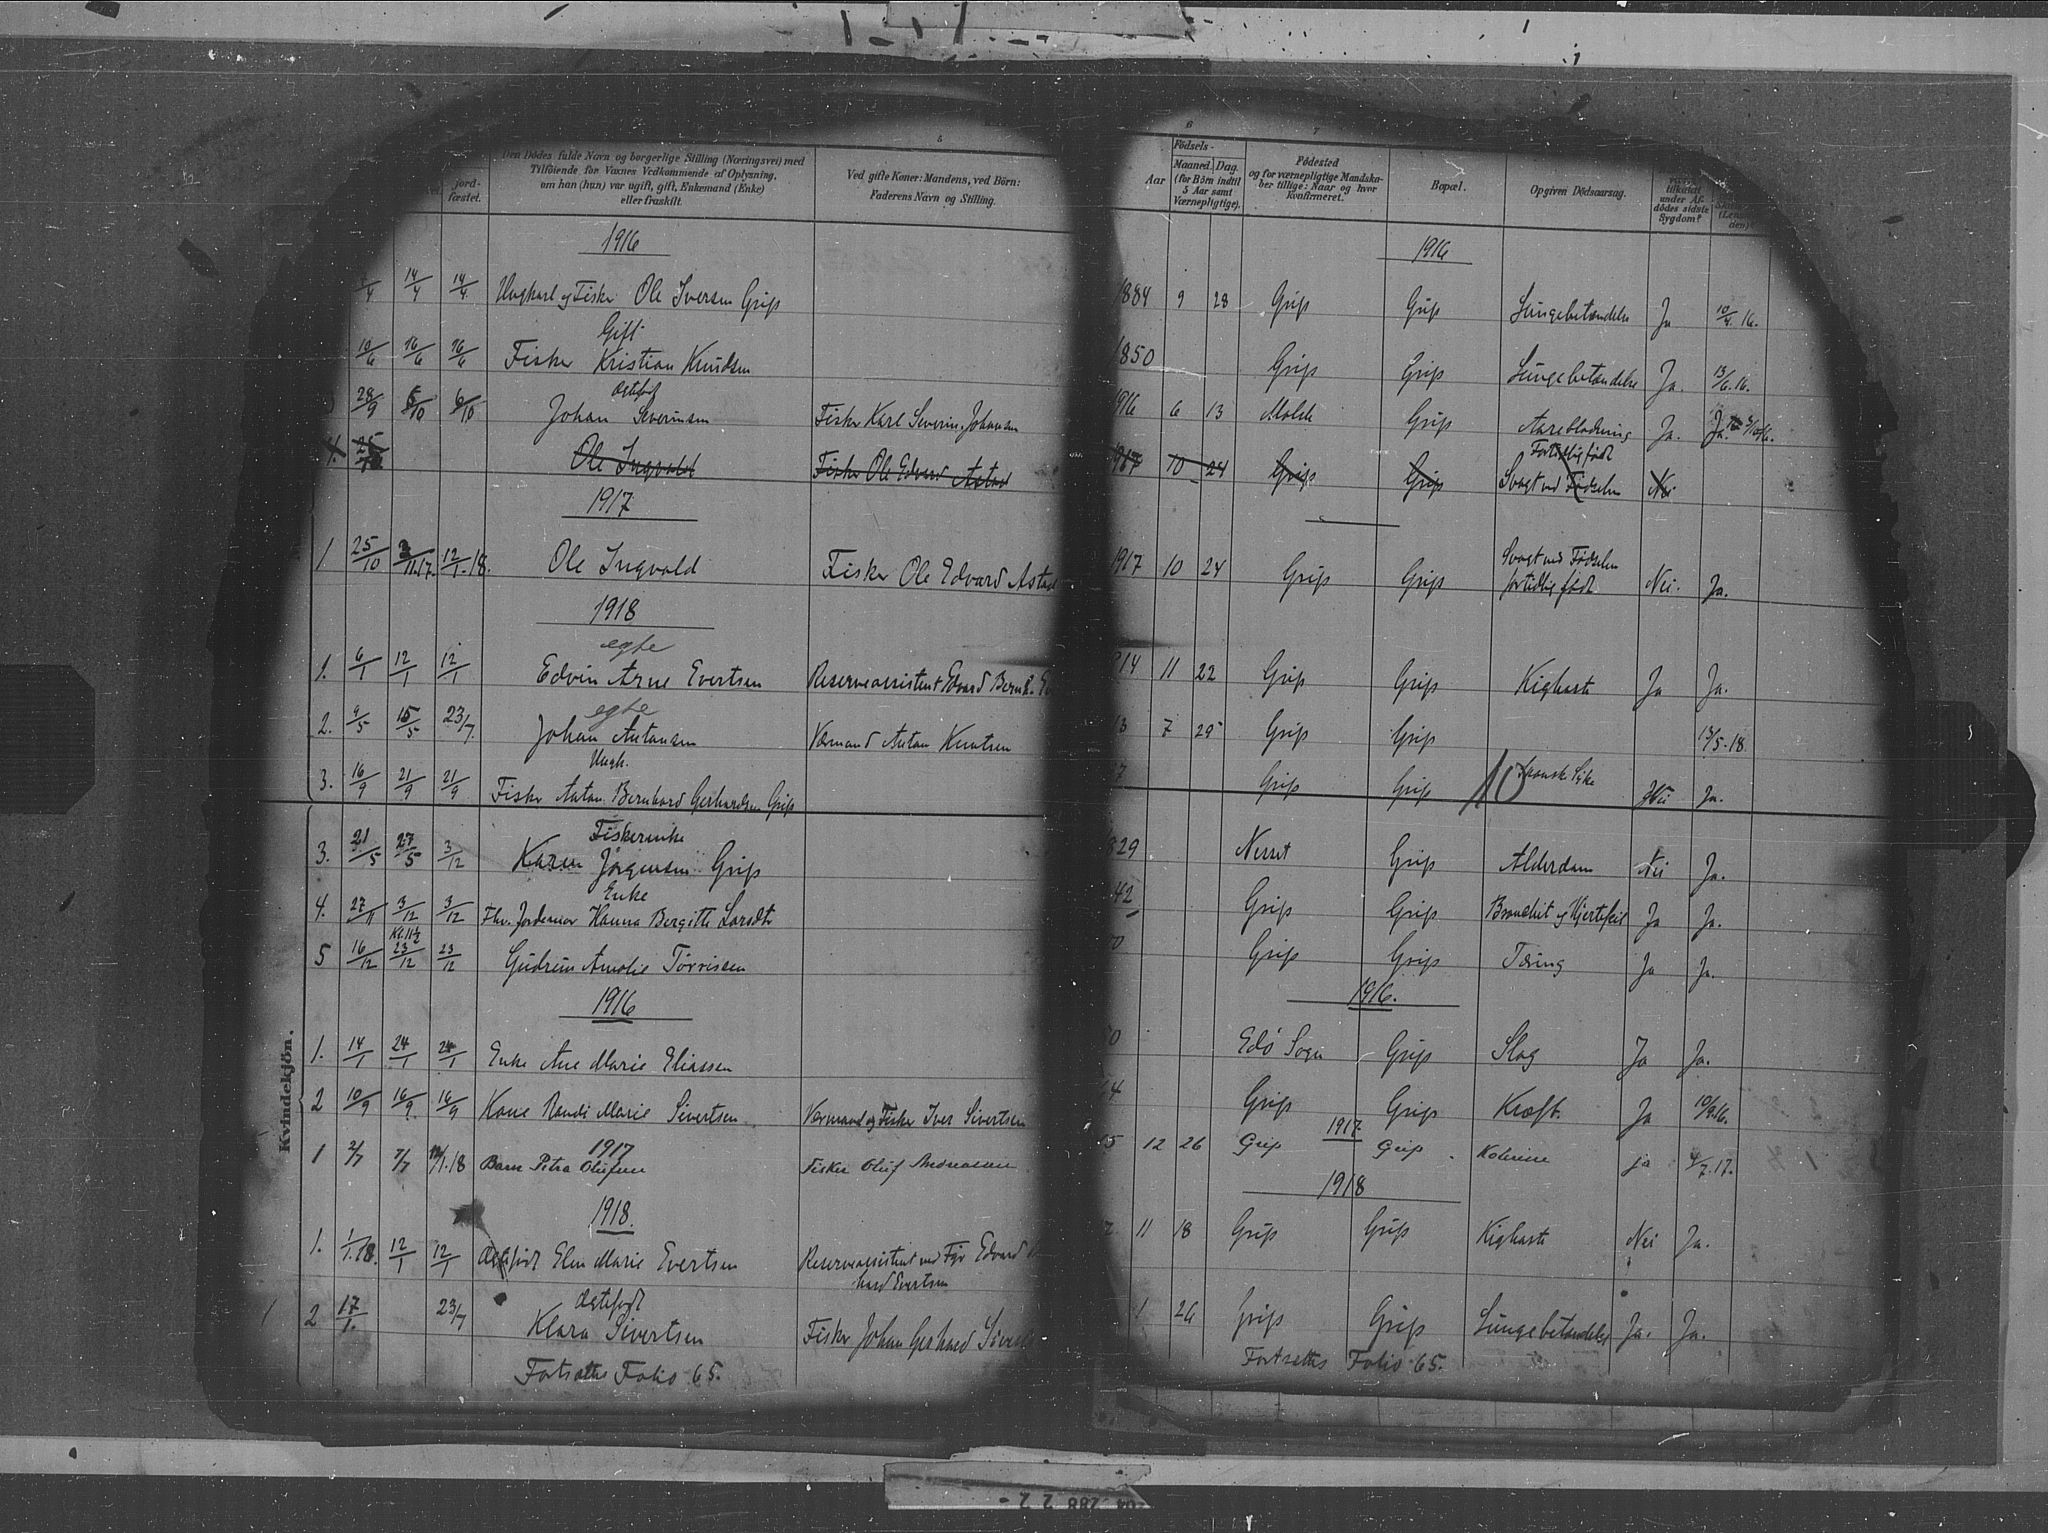 5
jord-
fæstet.
Den Dödes fulde Navn og borgerlige Stilling (Næringsvei) med
Tilföiende for Voxnes Vedkommende af Oplysning,
om han (hun) var ugift, gift, Enkemand (Enke)
eller fraskilt.
Ved gifte Koner: Mandens, ved Börn:
Faderens Navn og Stilling.
1916
/4 14/4 14/4 Ungkarl og Fisker Ole Iversen Grip
Gift
10/6 16/6 16/6 Fisker Kristian Knudsen
Ægtefød
28/9 6/10 6/10 Johan Severinsen Fisker Karl Severin Johansen
4. 25/10 Ole Ingvald Fisker Ole Edvard Astad
1917
1 25/10 3/11.17. 12/1.18. Ole Ingvald Fisker Ole Edvard Astad
1918
egte
1. 6/1 12/1 12/1 Edvin Arne Evertsen Reserveassistent Edvard Bernh.
egte
2. 9/5 15/5 23/7. Johan Antonsen Værmand Anton Knutsen
Ungk.
3. 16/9 21/9 21/9 Fisker Anton Bernhard Gerhardsen Grip
Kvindekjön.
Fiskerenke
3. 21/5 27/5 3/12 Karen Jörgensen Grip
Enke
4. 27/11 3/12 3/12 Fhv. Jordemor Hanna Bergitte Larsdtr
Kl. 11½
5 16/12 23/12 23/12 Gudrun Amalie Tørrissen
1916
1. 14/1 24/1 24/1 Enke Ane Marie Eliassen
2 10/9 16/9. 16/9 Kone Randi Marie Sivertsen. Værmand og Fisker Iver Sivertsen
1917
1 2/7 7/7 12/1.18 Barn Petra Olufsen Fisker Oluf Andreassen
1918.
1. 1/1.18. 12/1 12/1 Ægtefødt Elen Marie Evertsen Reserveassistent ved Fyr Edvard
hard Evertsen
Ægtefødt
2 17/1. 23/7 Klara Sivertsen Fisker Johan Gerhard
Fortsættes Folio 65.
6
7
Aar
Födsels-
Maaned. Dag.
(for Börn indtil
5 Aar samt
Værnepligtige).
Födested
og for værnepligtige Mandska-
ber tillige: Naar og hvor
Konfirmeret.
Bopæl.
Opgiven Dödsaarsag.
tilkaldt
under Af-
dödes sidste
Sygdom?
1916
1884 9 28 Grip Grip Lungebetændelse Ja 10/4.16.
1850 Grip Grip Lungebetændelse Ja. 13/6.16.
1916 6 13 Molde Grip Aareblødning Ja. Ja.
Fortidlig født
1917 10 24 Grip Grip Svagt ved Fødselen Nei
Svagt ved Fødselen
1917 10 24 Grip Grip fortidlig født Nei. Ja.
14 11 22 Grip Grip Kighoste Ja Ja.
13 7 29 Grip Grip 13/5.18.
Spansk Syke
10
7 Grip Grip Nei Ja.
829 Nesset Grip Alderdom Nei Ja.
42 Grip Grip Bronchit og Hjertefeil Ja Ja.
0 Grip Grip Tæring Ja Ja.
1916.
0 Edö Sogn Grip Slag Ja Ja.
4 Grip Grip Kræft. Ja 10/9.16.
1917
5 12 26 Grip Grip. Kolerine ja 4/7.17.
1918
11 18 Grip Grip Kighoste Nei Ja.
1 26 Grip Grip Lungebetændelse Ja. Ja.
Fortsættes Folio 65.